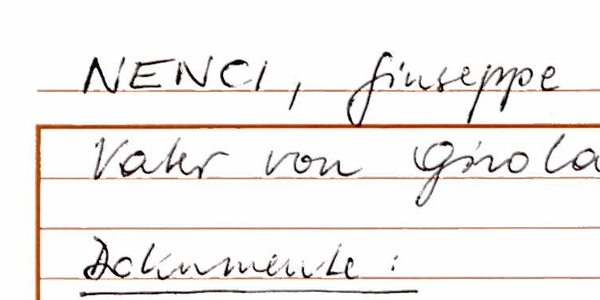 NENCI, Giuseppe
Vater von Girola
Dokumente: